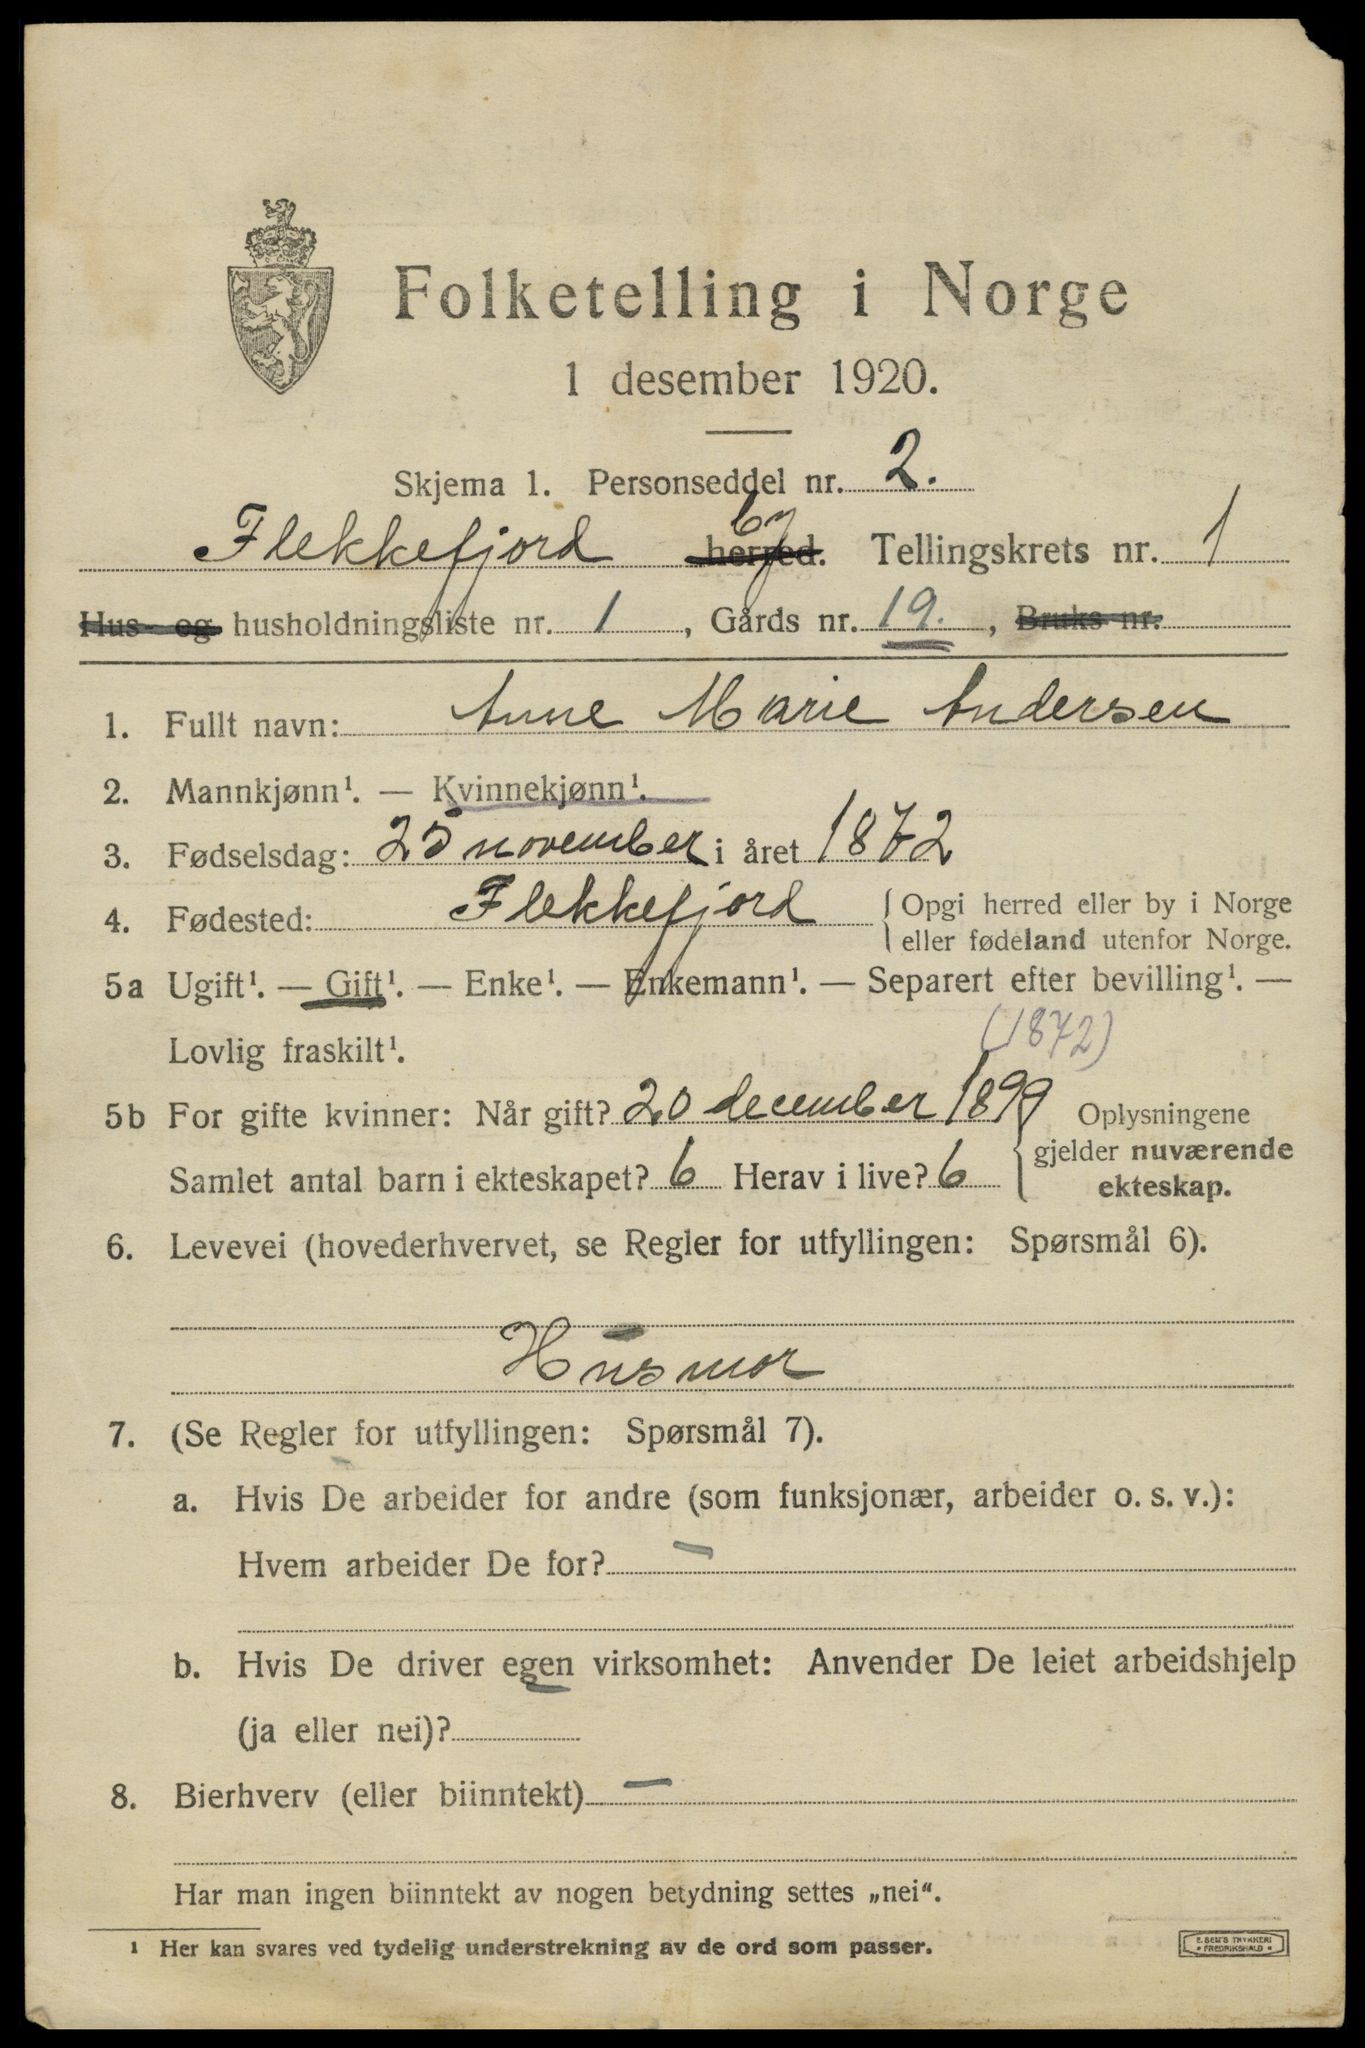 Folketelling i Norge
1 desember 1920.
Skjema 1. Personseddel nr. 2.
Flekkefjord by herred. Tellingskrets nr. 1
Hus- og husholdningsliste nr. 1, Gårds nr. 19., Bruks nr.
1. Fullt navn: Anne Marie Andersen
2. Mannkjønn¹. — Kvinnekjønn¹.
3. Fødselsdag: 25 november i året 1872
4. Fødested: Flekkefjord { Opgi herred eller by i Norge
eller fødeland utenfor Norge.
5a Ugift¹. — Gift¹. — Enke¹. — Enkemann¹. — Separert efter bevilling¹. —
Lovlig fraskilt¹. (1872)
5b For gifte kvinner: Når gift? 20 december 1899 Oplysningene
Samlet antal barn i ekteskapet? 6 Herav i live? 6 { gjelder nuværende
ekteskap.
6. Levevei (hovederhvervet, se Regler for utfyllingen: Spørsmål 6).
Husmor
7. (Se Regler for utfyllingen: Spørsmål 7).
a. Hvis De arbeider for andre (som funksjonær, arbeider o. s. v.):
Hvem arbeider De for? —
b. Hvis De driver egen virksomhet: Anvender De leiet arbeidshjelp
(ja eller nei)?
8. Bierhverv (eller biinntekt) —
Har man ingen biinntekt av nogen betydning settes „nei“.
¹ Her kan svares ved tydelig understrekning av de ord som passer.
E. SEM'S TRYKKERI
• FREDRIKSHALD •